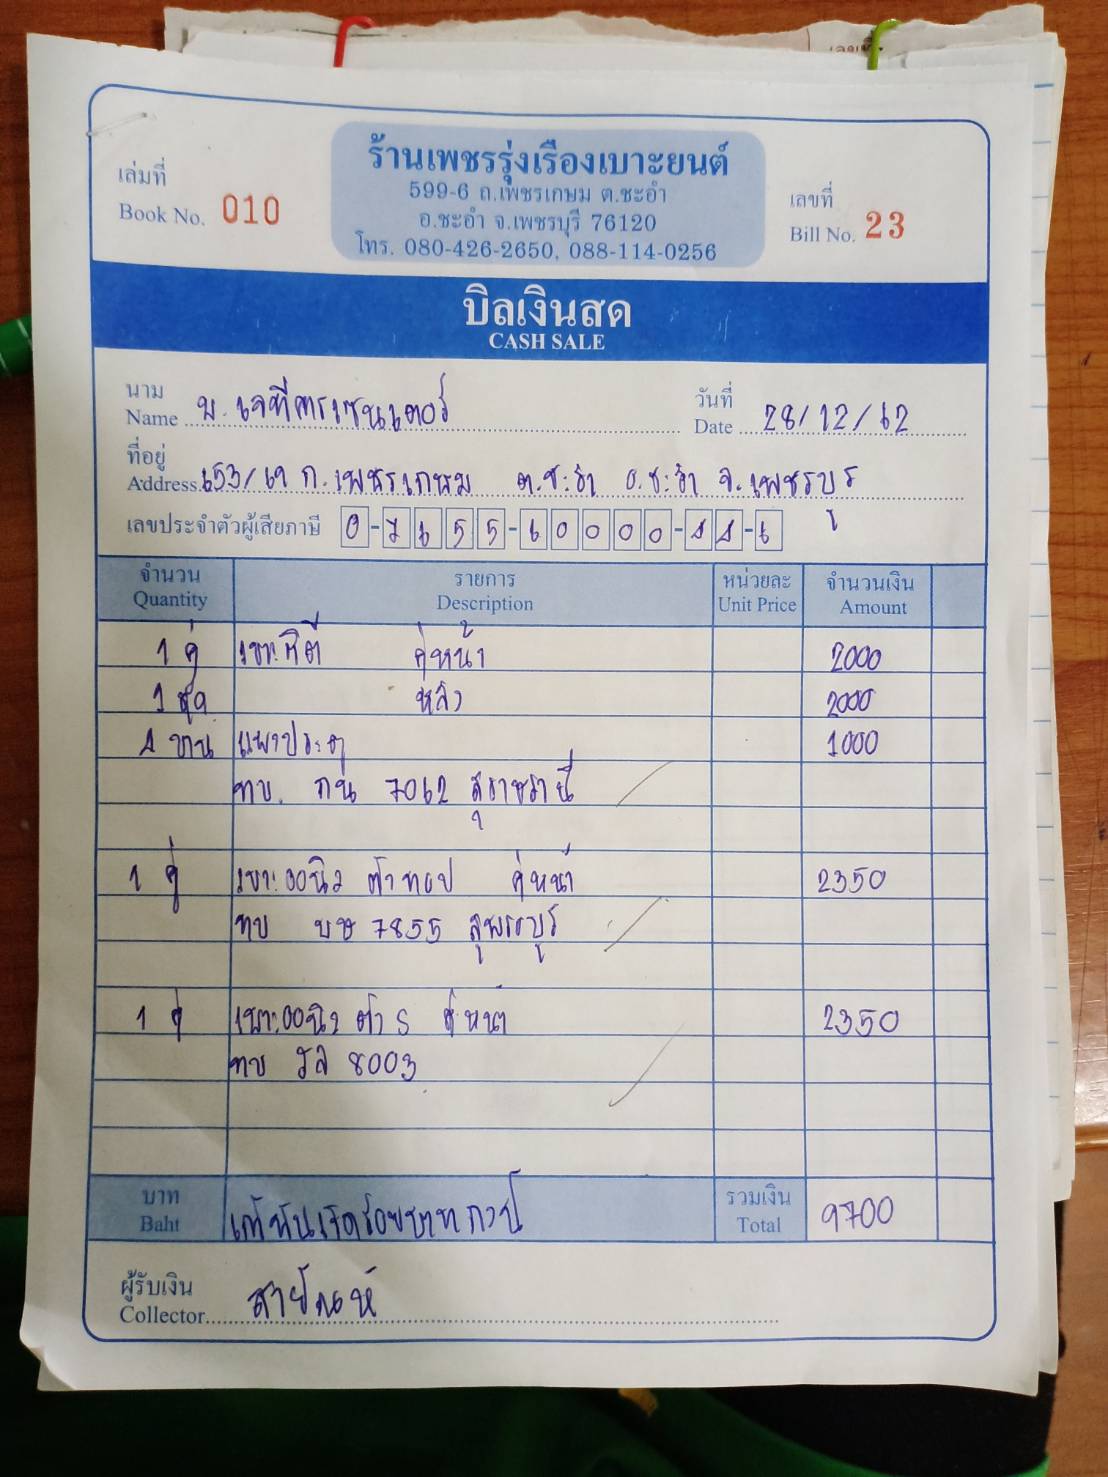 เลขที่
ร้านเพชรรุ่งเรืองเบาะยนต์
599-6 ถ.เพชรเกษม ต.ชะอำ
อ.ชะอำ จ.เพชรบุรี 76120
โทร. 080-426-2650, 088-114-0256
เล่มที่
Book No. 010
เลขที่
Bill No. 23
บิลเงินสด
CASH SALE
นาม
Name บ.เจที่คาร์เซนเตอร์
วันที่
Date 28/12/62
ที่อยู่
Address 653/ ถ.เพชรเกษม ต.ชะอำ อ.ชะอำ จ.เพชรบุรี
เลขประจำตัวผู้เสียภาษี 0-7655-60000-11-6
จำนวน รายการ หน่วยละ จำนวนเงิน
Quantity Description Unit Price Amount
1 คู่ คู่หน้า 2000
1 ชุด หลัง 2000
1 บาน แผงประตู 1000
ทบ. กน 7062 สุราษธานี
1 คู่ เบาะ ตัวทอป คู่หน้า 2350
ทบ บษ 7855 สุพรรณบุรี
1 คู่ เบาะ ตัว S คู่หน้า 2350
ทบ 8003
บาท
Baht เก้าพันเจ็ดร้อยบาทถ้วน
รวมเงิน
Total 9700
ผู้รับเงิน
Collector